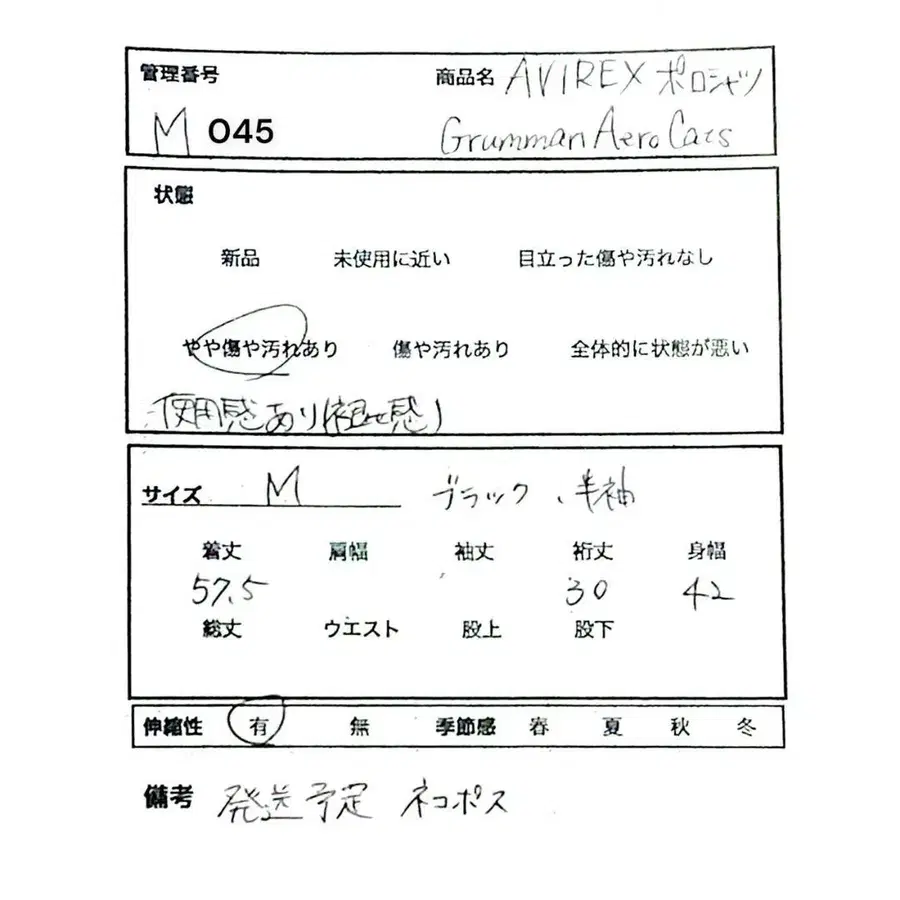 管理番号 商品名 AVIREX ポロシャツ
M 045 Grumman Aero Cats
状態
新品 未使用に近い 目立った傷や汚れなし
やや傷や汚れあり 傷や汚れあり 全体的に状態が悪い
使用感あり(褪せ感)
サイズ M ブラック、半袖
着丈 肩幅 袖丈 裄丈 身幅
57.5 30 42
総丈 ウエスト 股上 股下
伸縮性 有 無 季節感 春 夏 秋 冬
備考 発送予定 ネコポス